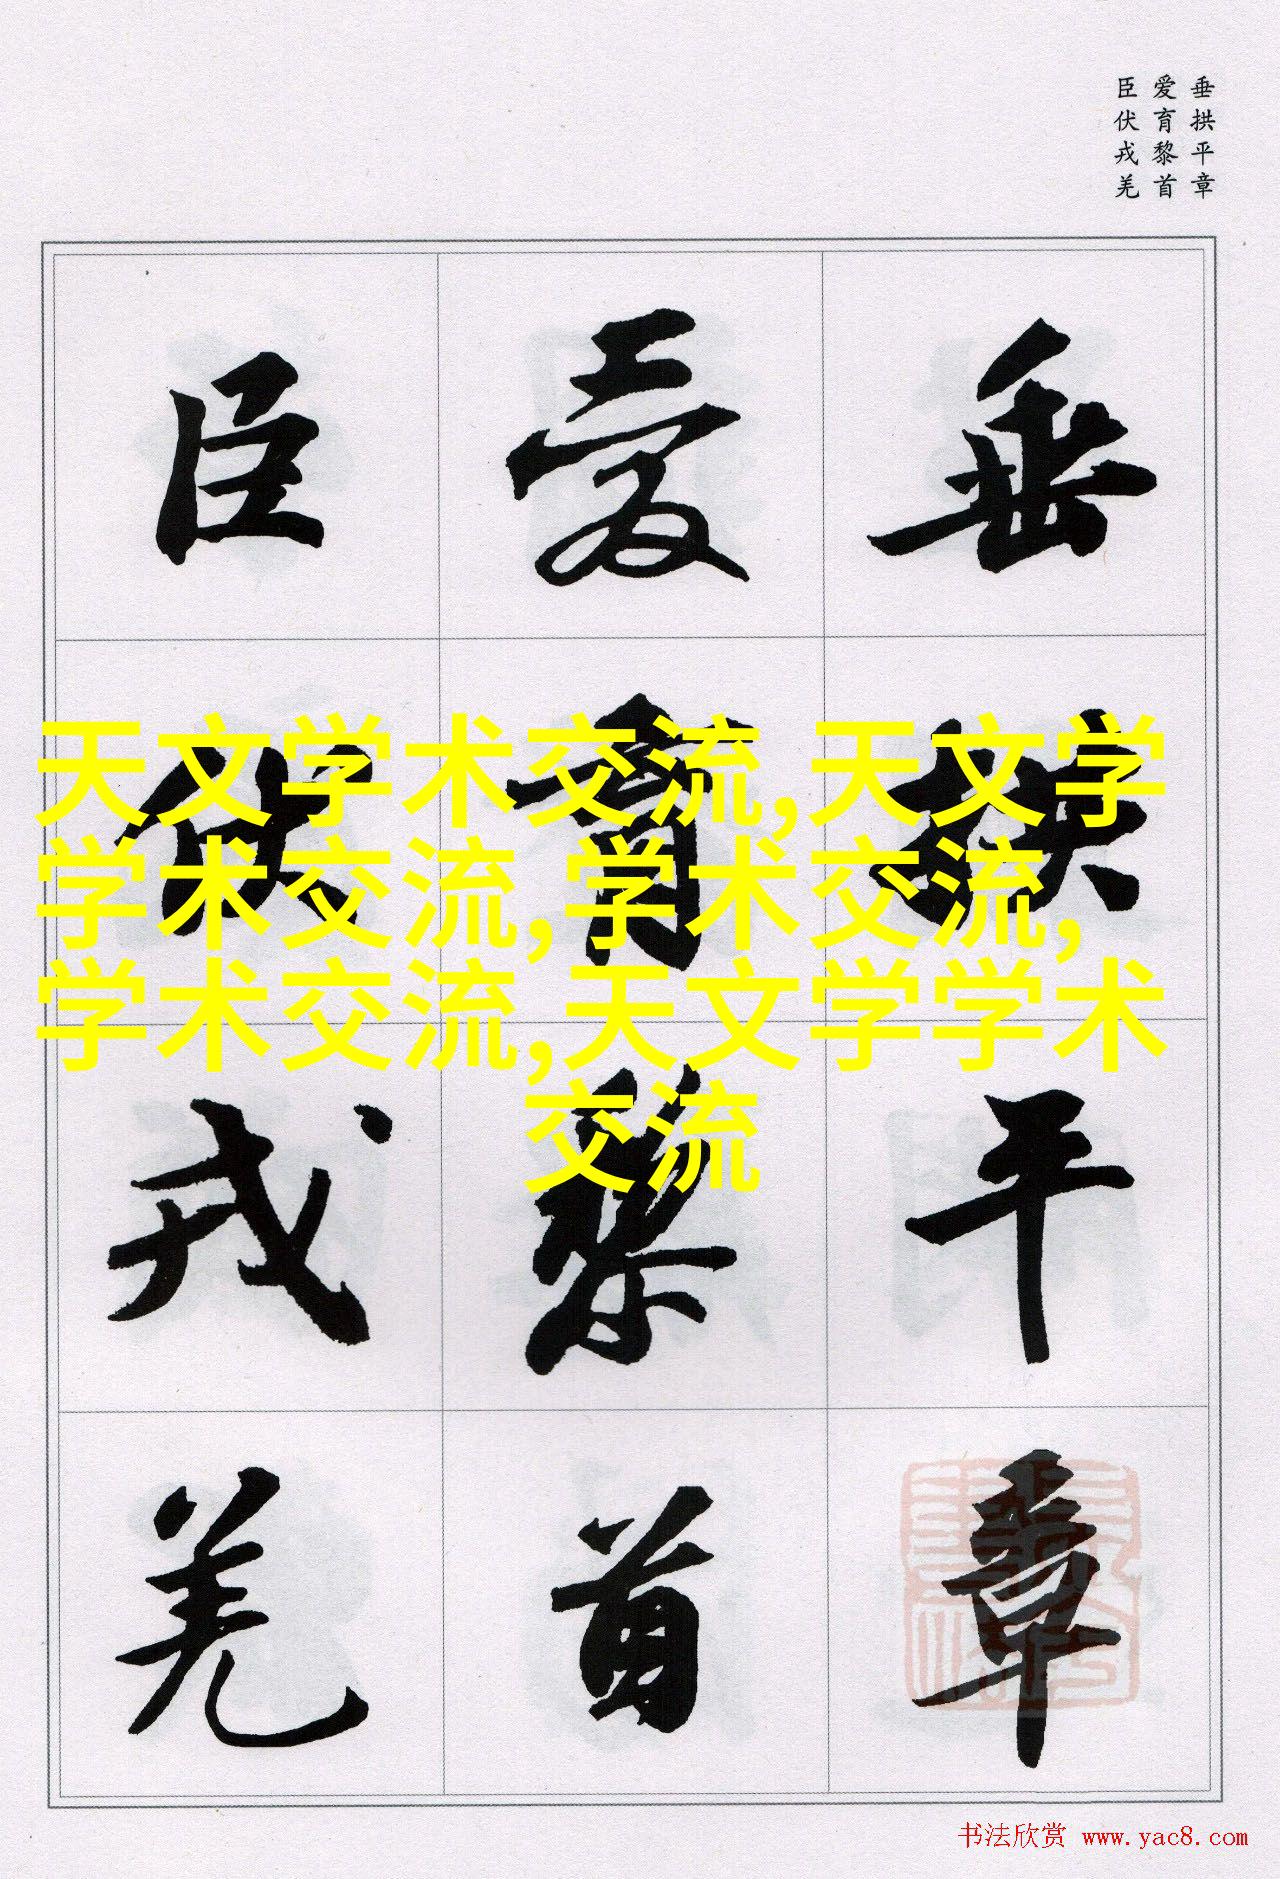 垂拱平章
爱育黎首
臣伏戎羌
垂拱平章
爱育黎首
臣伏戎羌
天文学术交流,天文学
学术交流,学术交流,
学术交流,天文学学术
交流
书法欣赏 www.yac8.com